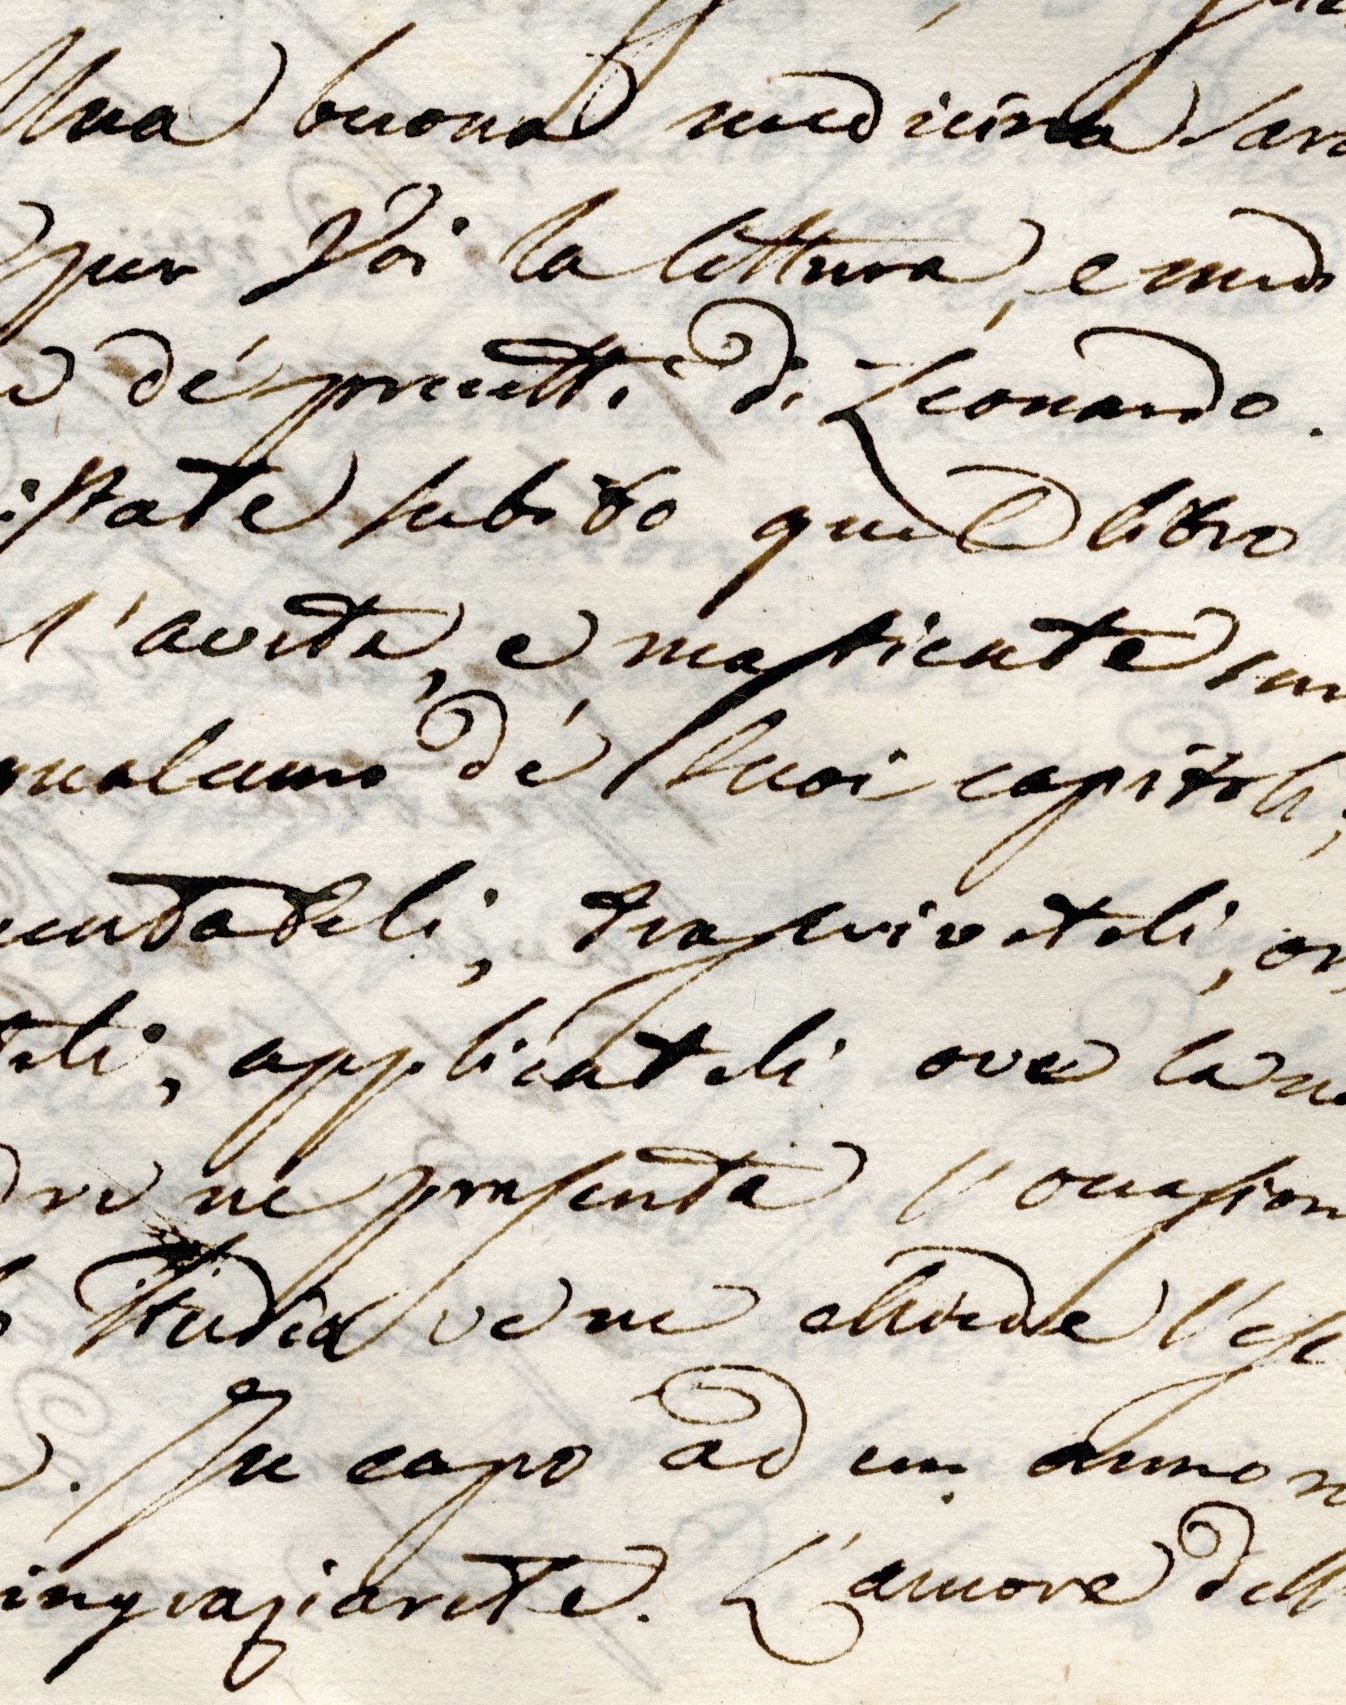 Una buona medicina sarà
per Voi la lettura, e medi
e dé precetti di Leonardo.
istate subito quel libro
l'avete, e masticate un
qualcuno dé suoi capitoli;
entateli, trascriveteli, or
teli, applicateli ove la na
ve ne presenta l'occasion
studia ve ne chiede l'ese
In capo ad un anno m
ingraziarete. L'amore dell